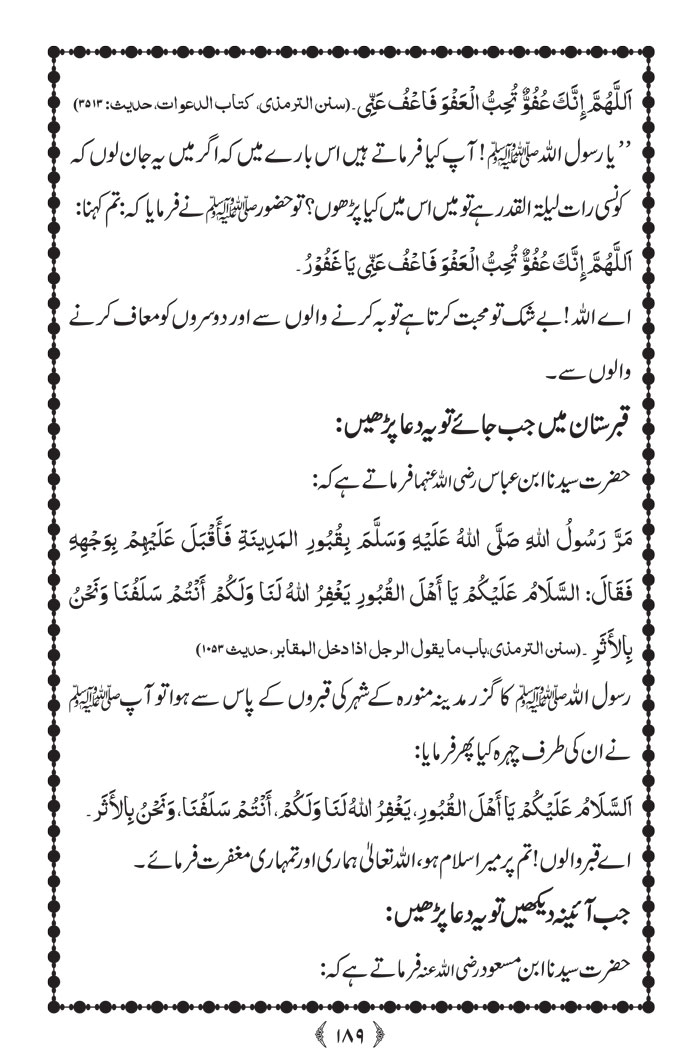 اَللّٰهُمَّ إِنَّكَ عُفُوٌّ تُحِبُّ الْعَفْوَ فَاعْفُ عَنِّى۔ (سنن الترمذی، کتاب الدعوات، حدیث: ۳۵۱۳)
’’یا رسول اللہ ﷺ! آپ کیا فرماتے ہیں اس بارے میں کہ اگر میں یہ جان لوں کہ
کونسی رات لیلۃ القدر ہے تو میں اس میں کیا پڑھوں؟ تو حضور ﷺ نے فرمایا کہ: تم کہنا:
اَللّٰهُمَّ إِنَّكَ عُفُوٌّ تُحِبُّ العَفْوَ فَاعْفُ عَنِّى يَا غَفُوْرُ۔
اے اللہ! بے شک تو محبت کرتا ہے توبہ کرنے والوں سے اور دوسروں کو معاف کرنے
والوں سے۔
قبرستان میں جب جائے تو یہ دعا پڑھیں:
حضرت سیدنا ابن عباس رضی اللہ عنہما فرماتے ہے کہ:
مَرَّ رَسُولُ اللهِ صَلَّى اللهُ عَلَيْهِ وَسَلَّمَ بِقُبُورِ المَدِينَةِ فَأَقْبَلَ عَلَيْهِمْ بِوَجْهِهِ
فَقَالَ: السَّلَامُ عَلَيْكُمْ يَا أَهْلَ القُبُورِ يَغْفِرُ اللهُ لَنَا وَلَكُمْ أَنْتُمْ سَلَفُنَا وَنَحْنُ
بِالأَثَرِ۔ (سنن الترمذی، باب ما یقول الرجل اذا دخل المقابر، حدیث ۱۰۵۳)
رسول اللہ ﷺ کا گزر مدینہ منورہ کے شہر کی قبروں کے پاس سے ہوا تو آپ ﷺ
نے ان کی طرف چہرہ کیا پھر فرمایا:
اَلسَّلَامُ عَلَيْكُمْ يَا أَهْلَ القُبُورِ، يَغْفِرُ اللهُ لَنَا وَلَكُمْ، أَنْتُمْ سَلَفُنَا، وَنَحْنُ بِالأَثَر۔
اے قبر والوں! تم پر میرا سلام ہو، اللہ تعالیٰ ہماری اور تمہاری مغفرت فرمائے۔
جب آئینہ دیکھیں تو یہ دعا پڑھیں:
حضرت سیدنا ابن مسعود رضی اللہ عنہ فرماتے ہے کہ:
﴿۱۸۹﴾